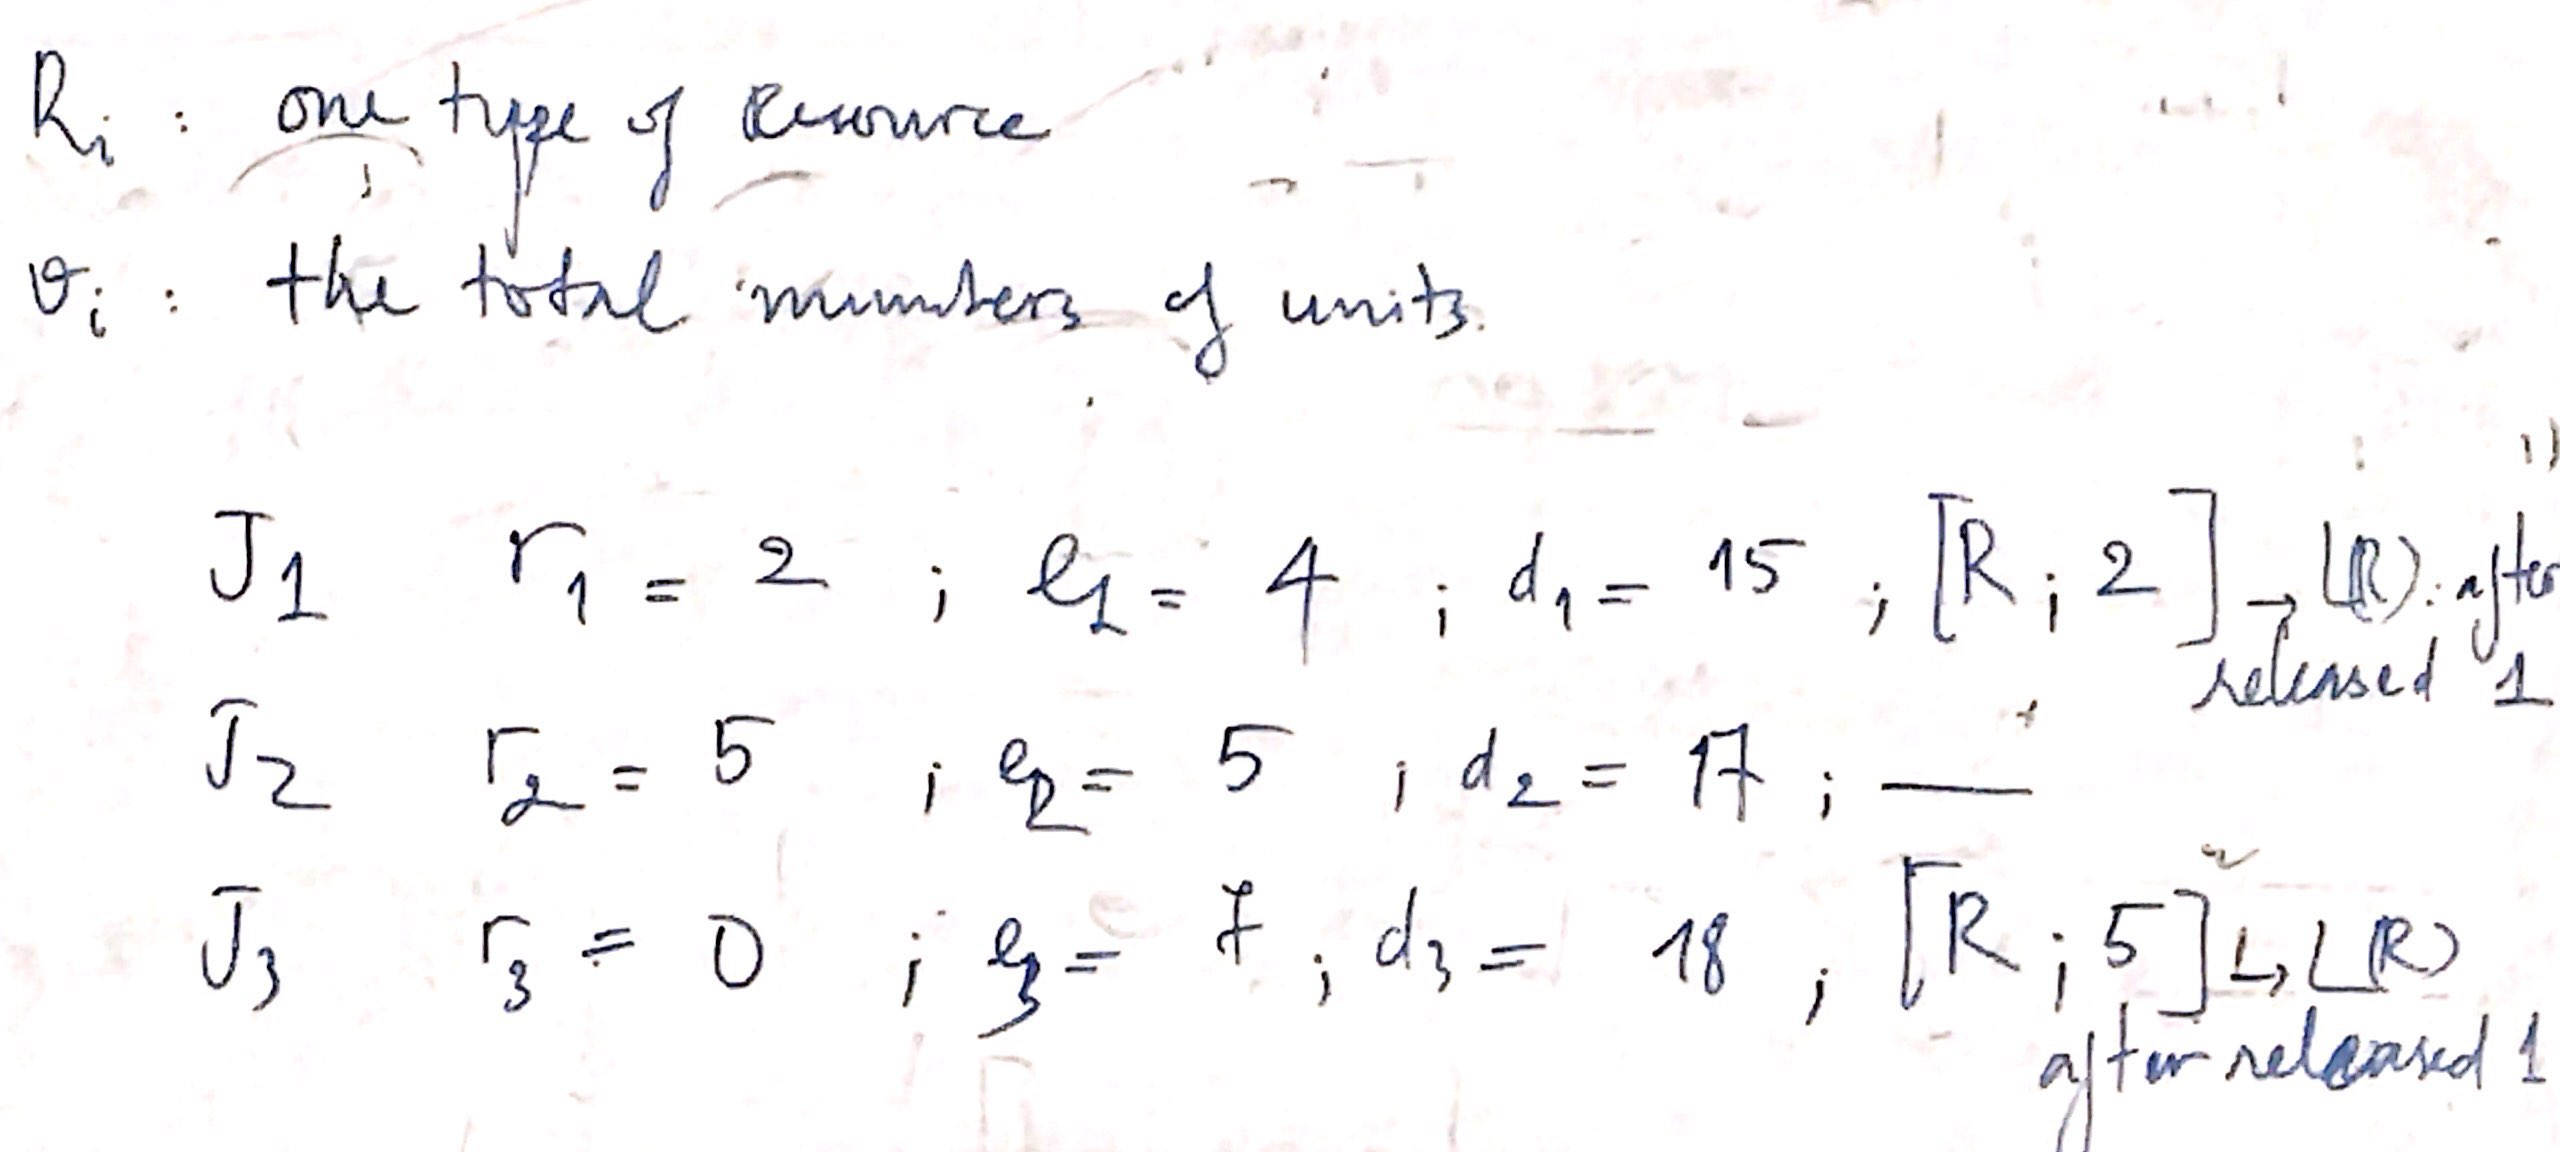 Ri : one type of Resource
vi : the total numbers of units.
J1 r1 = 2 ; e1 = 4 ; d1 = 15 ; [R ; 2] → L(R) : after
released 1
J2 r2 = 5 ; e2 = 5 ; d2 = 17 ; —
J3 r3 = 0 ; e3 = 7 ; d3 = 18 ; [R ; 5] ↳ L(R)
after released 1